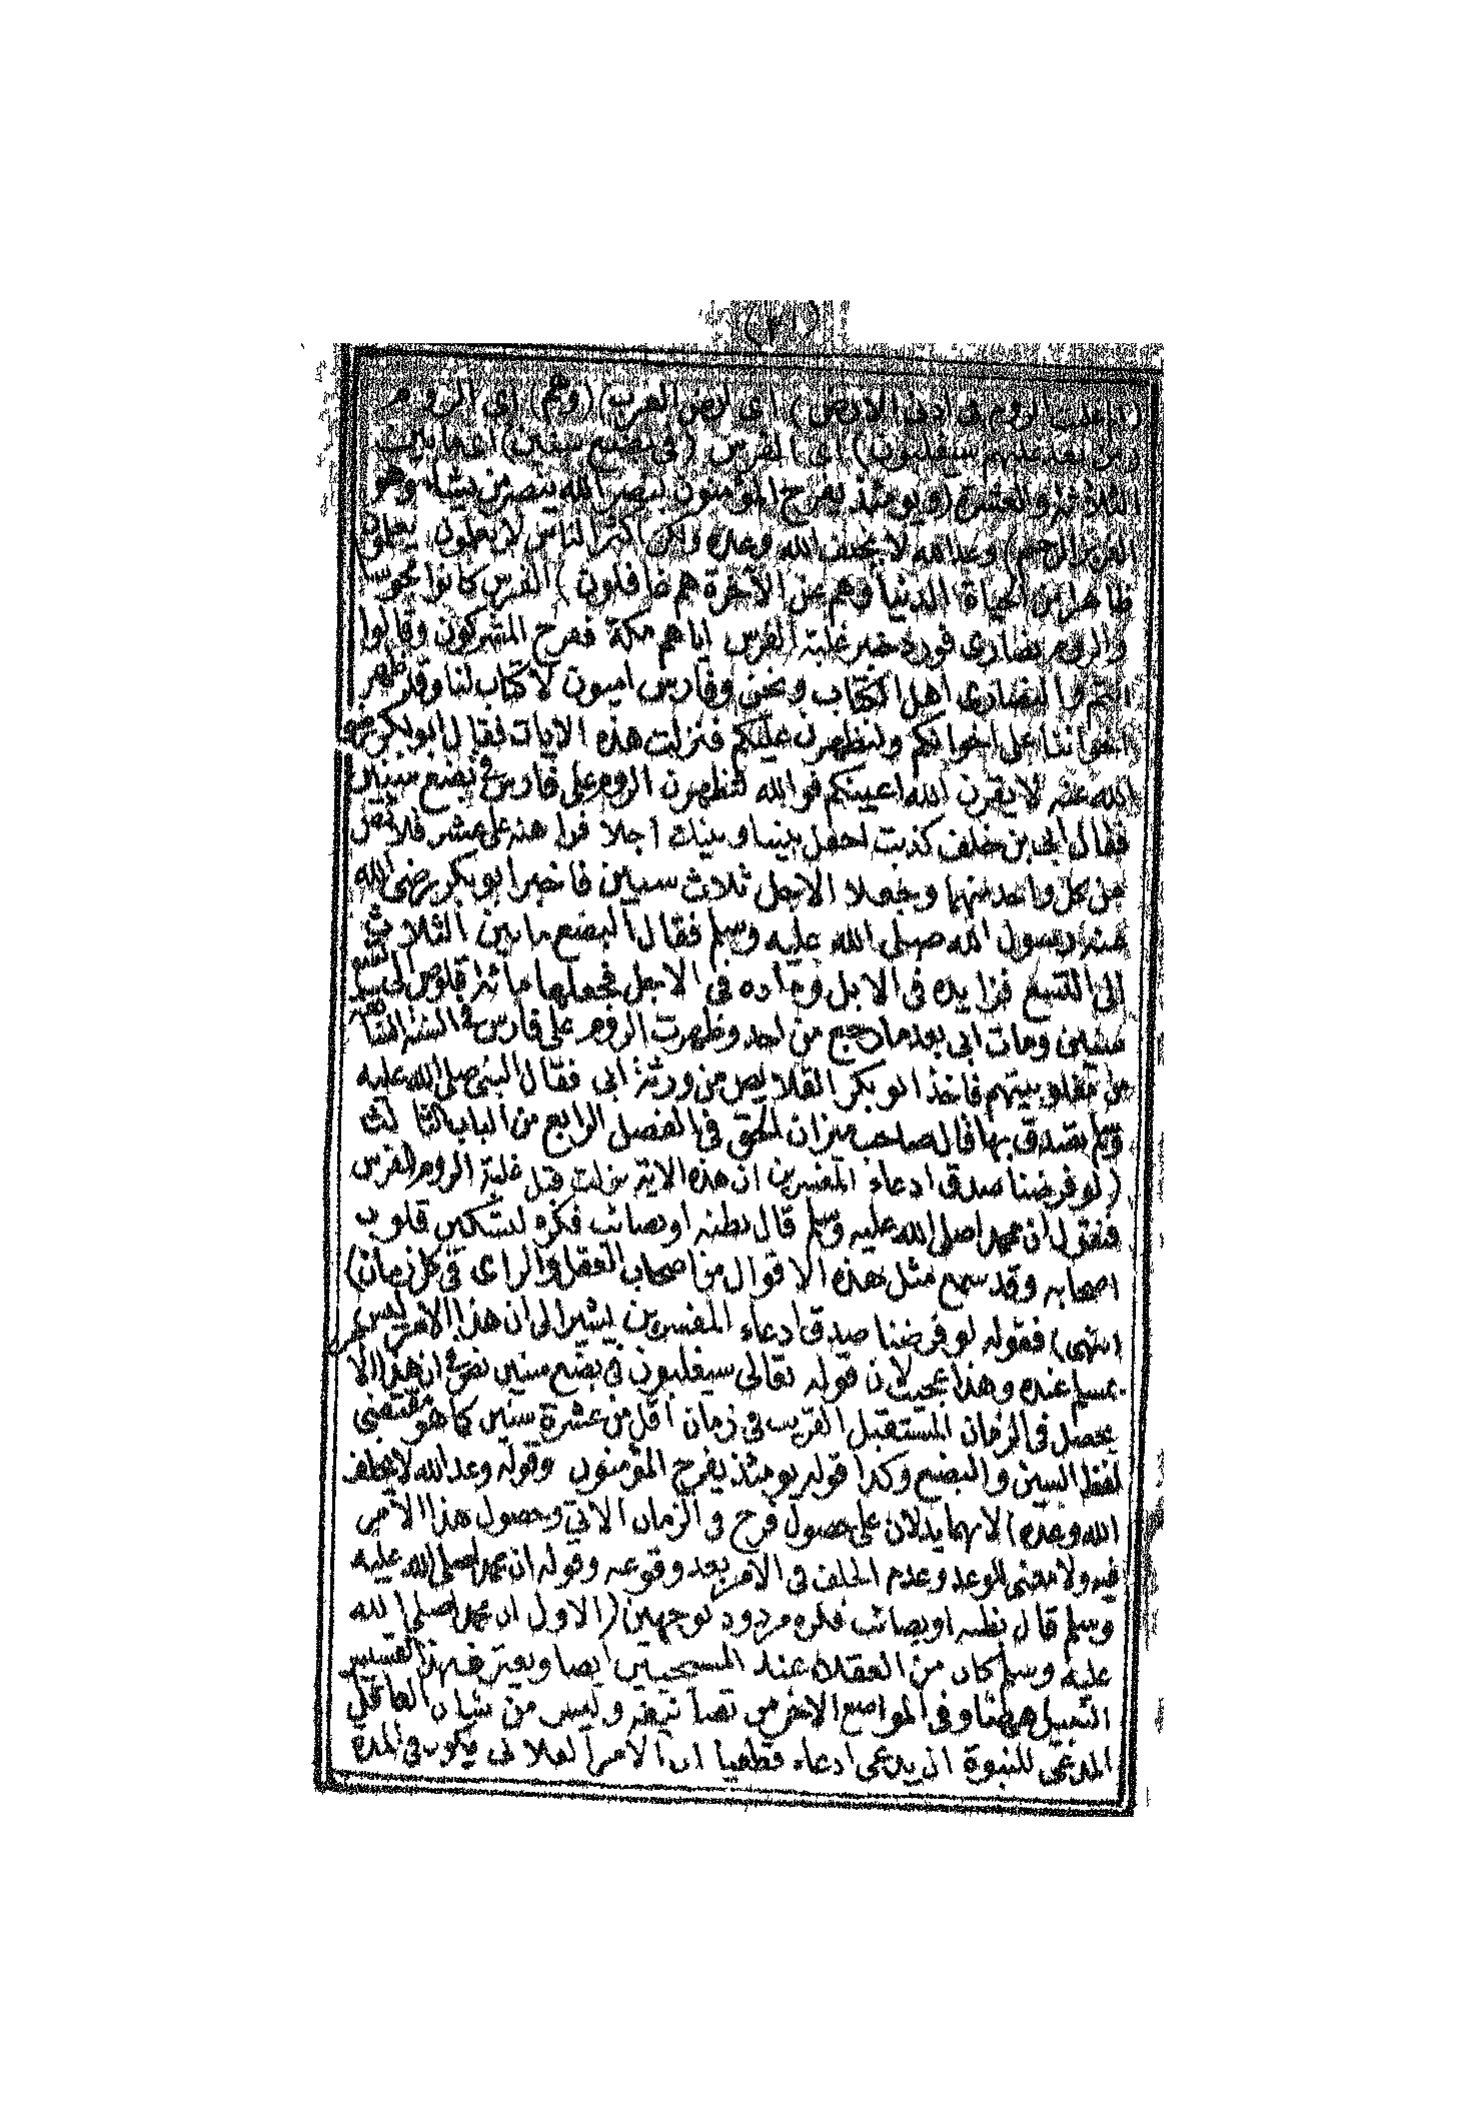 (الم غلبت الروم فى ادنى الارض) اى ارض العرب (وهم) اى الروم
(من بعد غلبهم سيغلبون) اى الفرس (فى بضع سنين) اعنى ما بين
الثلاثة والعشرة (ويومئذ يفرح المؤمنون بنصر الله ينصر من يشاء وهو
العزيز الرحيم) وعد الله لا يخلف الله وعده ولكن اكثر الناس لا يعلمون يعلمون
ظاهرا من الحياة الدنيا وهم عن الآخرة هم غافلون) الفرس كانوا مجوسا
والروم نصارى فورد خبر غلبة الفرس اياهم مكة ففرح المشركون وقالوا
انتم والنصارى اهل الكتاب ونحن وفارس اميون لا كتاب لنا وقد ظهر
اخواننا على اخوانكم ولنظهرن عليكم فنزلت هذه الايات فقال ابو بكر رضى
الله عنه لا يقرن الله اعينكم فوالله لتظهرن الروم على فارس فى بضع سنين
فقال ابى بن خلف كذبت اجعل بيننا وبينك اجلا فراهنه على عشر قلائص
من كل واحد منهما وجعلا الاجل ثلاث سنين فاخبر ابو بكر رضى الله
عنه رسول الله صلى الله عليه وسلم فقال البضع ما بين الثلاث
الى التسع فزايده فى الابل وماده فى الاجل فجعلها مائة قلوص الى تسع
سنين ومات ابى بعد ما رجع من احد وظهرت الروم على فارس فى السنة السابعة
من مغلوبيتهم فاخذ ابو بكر القلائص من ورثة ابى فقال النبى صلى الله عليه
وسلم تصدق بها قال صاحب ميزان الحق فى الفصل الرابع من الباب الثالث
(لو فرضنا صدق ادعاء المفسرين ان هذه الاية نزلت قبل غلبة الروم الفرس
فنقول ان محمدا صلى الله عليه وسلم قال بظنه او بصائب فكره لتسكين قلوب
اصحابه وقد سمع مثل هذه الاقوال من اصحاب العقل والراى فى كل زمان)
(انتهى) فقوله لو فرضنا صدق ادعاء المفسرين يشير الى ان هذا الامر ليس
بمسلم عنده وهذا عجيب لان قوله تعالى سيغلبون فى بضع سنين نص فى ان هذا الامر
يحصل فى الزمان المستقبل القريب فى زمان اقل من عشرة سنين كما هو مقتضى
لفظ السين والبضع وكذا قوله يومئذ يفرح المؤمنون وقوله وعد الله لا يخلف
الله وعده) لانهما يدلان على حصول فرح فى الزمان الاتى وحصول هذا الامر
فيه ولا معنى للوعد وعدم الخلف فى الامر بعد وقوعه وقوله ان محمدا صلى الله عليه
وسلم قال بظنه او بصائب فكره مردود لوجهين (الاول ان محمدا صلى الله
عليه وسلم كان من العقلاء عند المسيحيين ايضا ويعترف بهذا القسيس
النبيل ههنا وفى المواضع الاخر من تصانيفه وليس من شان العاقل
المدعى للنبوة ان يدعى ادعاء قطعيا ان الامر الفلانى يكون فى المدة